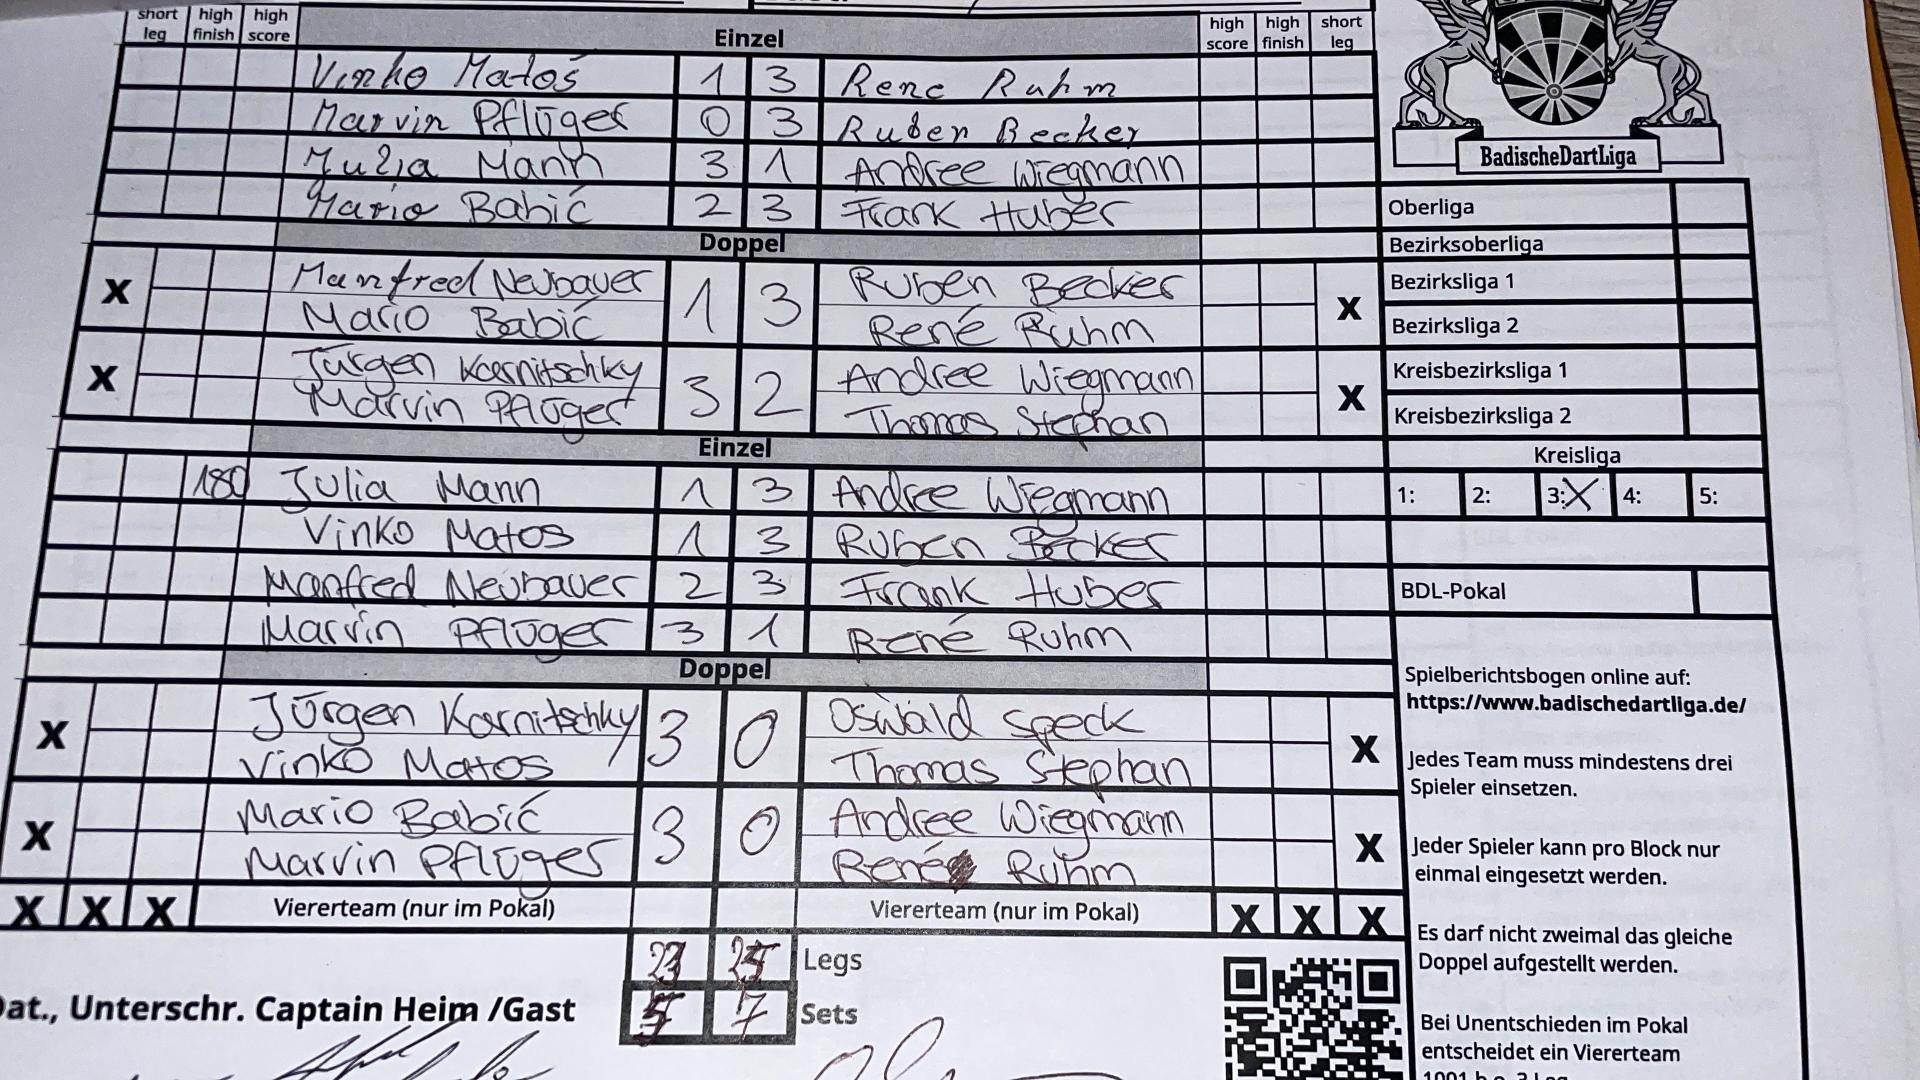 short leg high finish high score Einzel high score high finish short leg
Vinko Matoš 1 3 Rene Ruhm
Marvin Pflüger 0 3 Ruben Becker
Julia Mann 3 1 Andree Wiegmann
Mario Babić 2 3 Frank Huber
Doppel
X Manfred Neubauer 1 3 Ruben Becker X
Mario Babić René Ruhm
X Jürgen Karnitschky 3 2 Andree Wiegmann X
Marvin Pflüger Thomas Stephan
Einzel
180 Julia Mann 1 3 Andree Wiegmann
Vinko Matos 1 3 Ruben Becker
Manfred Neubauer 2 3 Frank Huber
Marvin Pflüger 3 1 René Ruhm
Doppel
X Jürgen Karnitschky 3 0 Oswald Speck X
Vinko Matos Thomas Stephan
X Mario Babić 3 0 Andree Wiegmann X
Marvin Pflüger René Ruhm
X X X Viererteam (nur im Pokal) Viererteam (nur im Pokal) X X X
23 25 Legs
5 7 Sets
Dat., Unterschr. Captain Heim /Gast
BadischeDartLiga
Oberliga
Bezirksoberliga
Bezirksliga 1
Bezirksliga 2
Kreisbezirksliga 1
Kreisbezirksliga 2
Kreisliga
1: 2: 3: X 4: 5:
BDL-Pokal
Spielberichtsbogen online auf:
https://www.badischedartliga.de/
Jedes Team muss mindestens drei
Spieler einsetzen.
Jeder Spieler kann pro Block nur
einmal eingesetzt werden.
Es darf nicht zweimal das gleiche
Doppel aufgestellt werden.
Bei Unentschieden im Pokal
entscheidet ein Viererteam